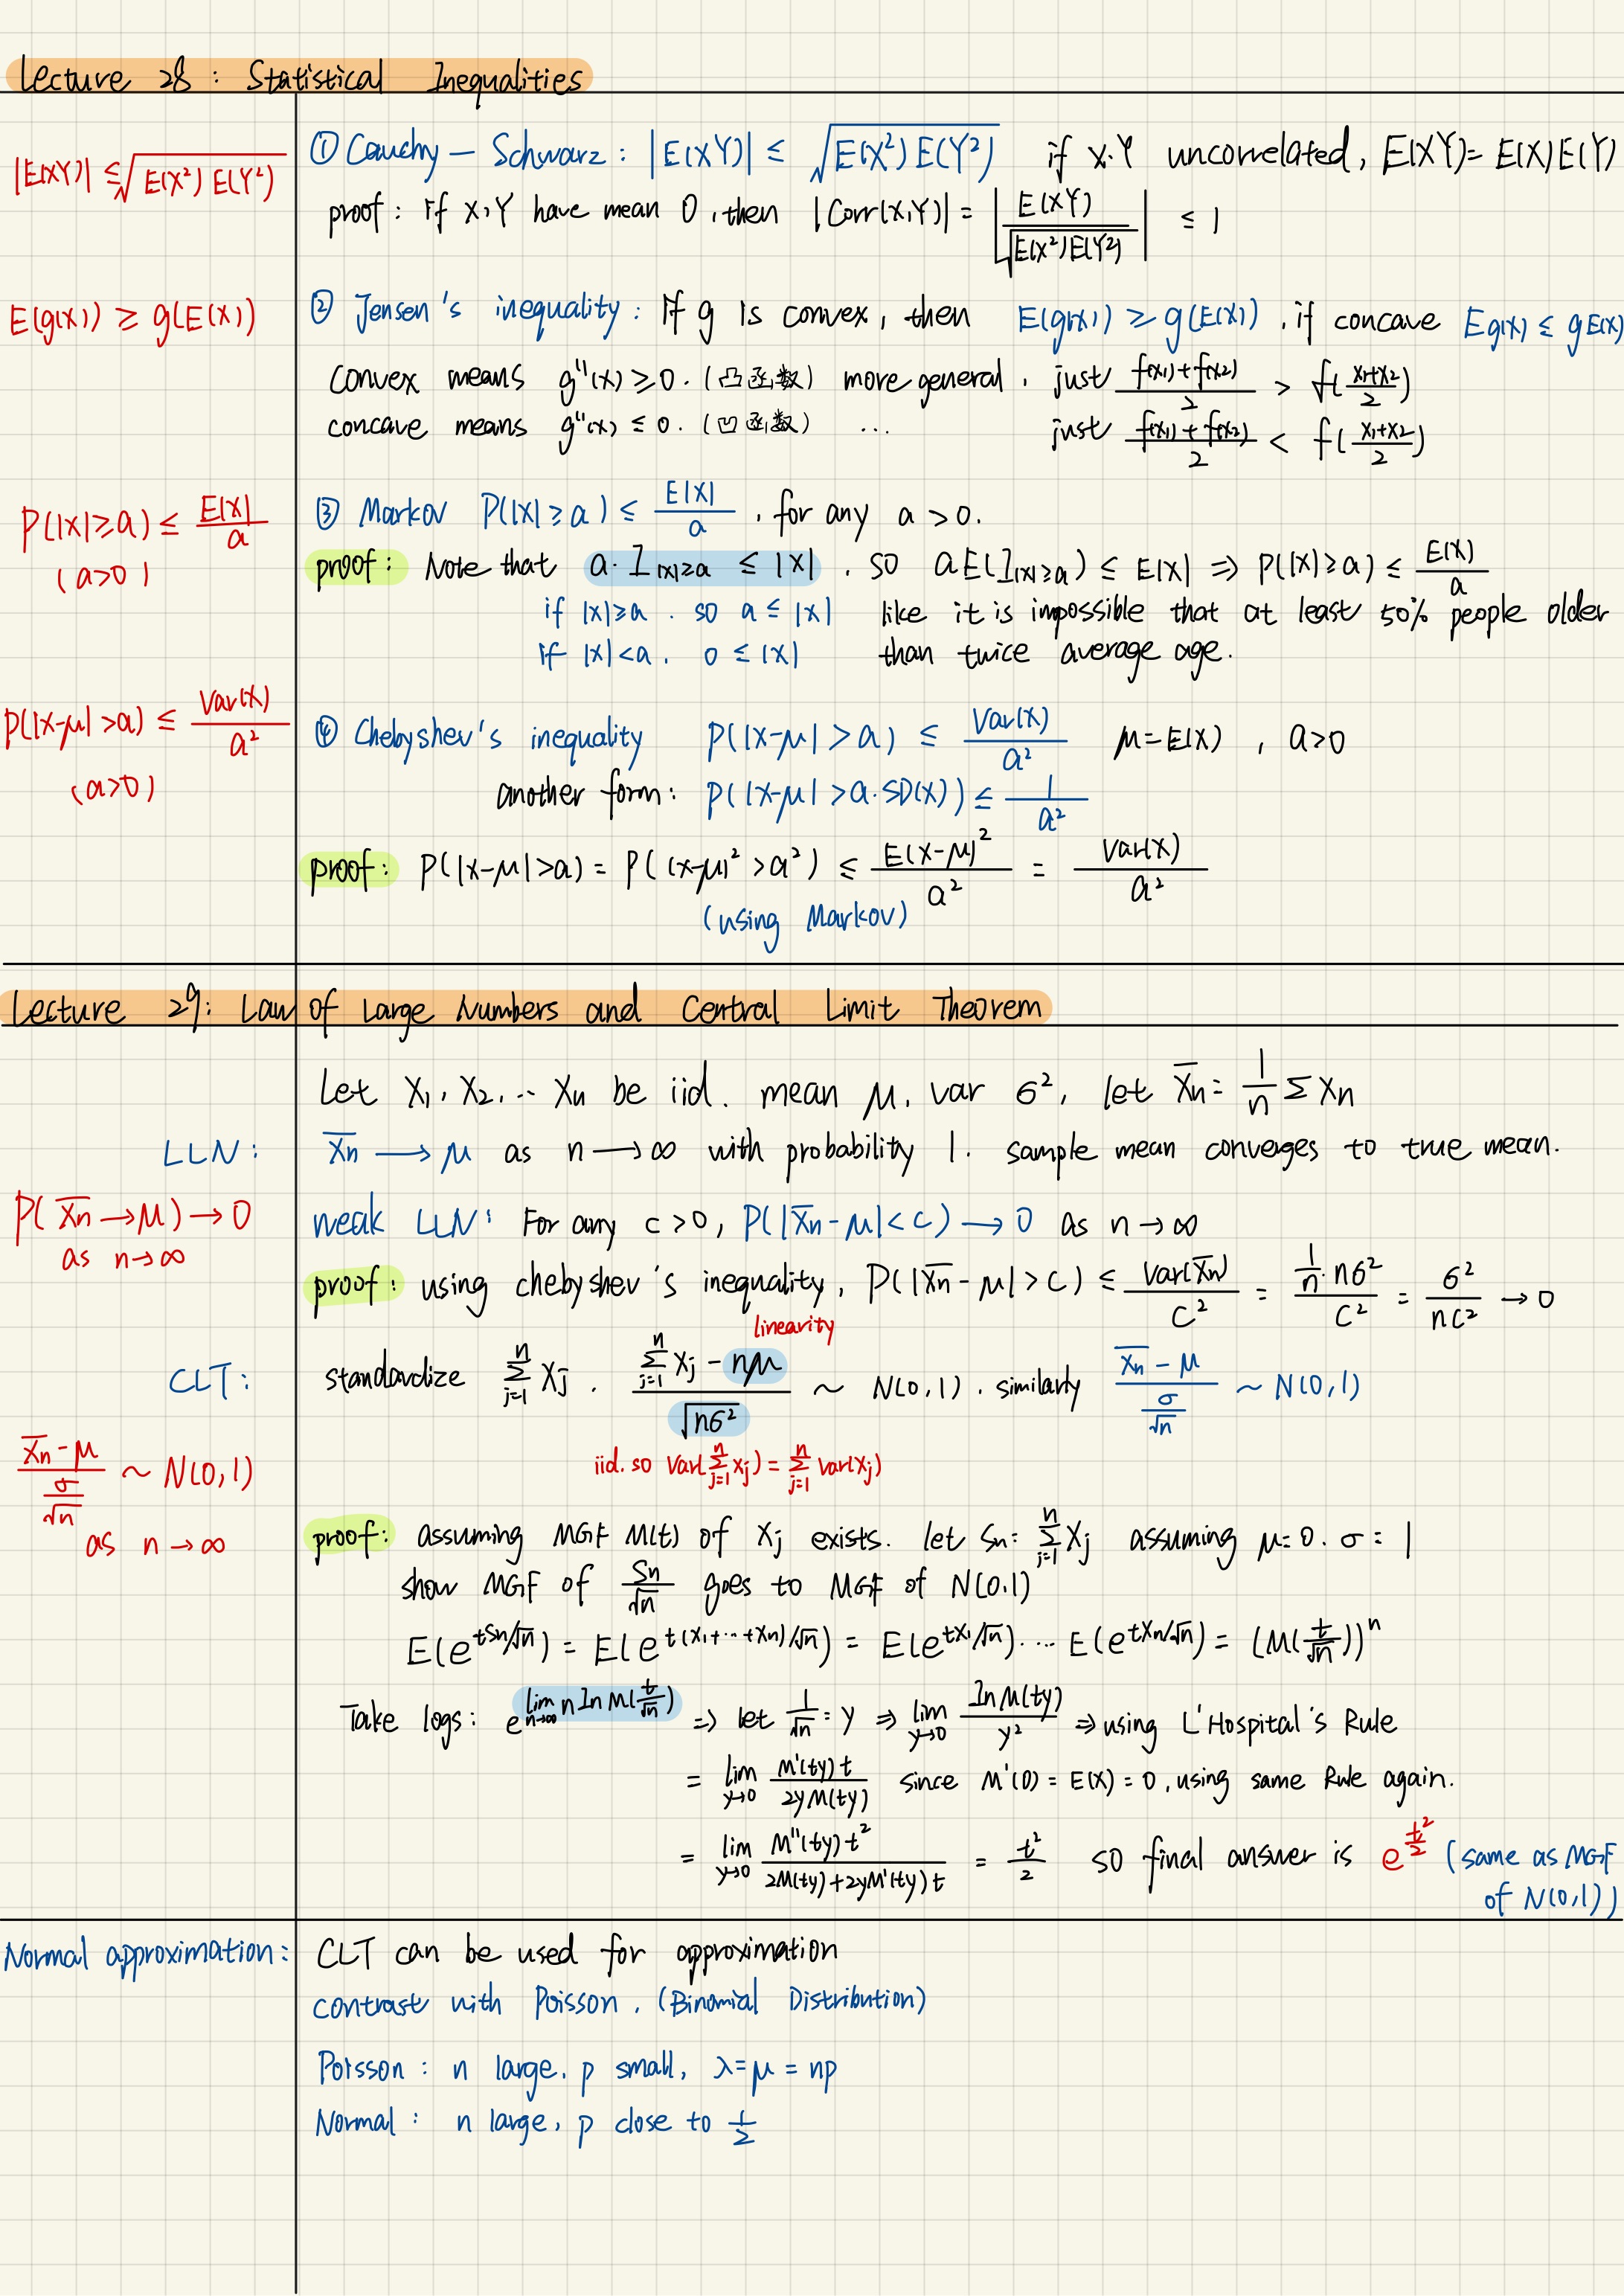 Lecture 28 : Statistical Inequalities
|E(XY)| ≤ √(E(X²) E(Y²))
① Cauchy — Schwarz : |E(XY)| ≤ √(E(X²) E(Y²)) if X.Y uncorrelated, E(XY) = E(X)E(Y)
proof : if X,Y have mean 0, then |Corr(X,Y)| = |E(XY) / √(E(X²)E(Y²))| ≤ 1
E(g(X)) ≥ g(E(X))
② Jensen's inequality : If g is convex, then E(g(X)) ≥ g(E(X)) . if concave Eg(X) ≤ gE(X)
convex means g''(x) ≥ 0. (凸函数) more general. just (f(x₁)+f(x₂))/2 > f((x₁+x₂)/2)
concave means g''(x) ≤ 0. (凹函数) ... just (f(x₁)+f(x₂))/2 < f((x₁+x₂)/2)
P(|X|≥a) ≤ E|X|/a
(a>0)
③ Markov P(|X|≥a) ≤ E|X|/a , for any a>0.
proof: Note that a·I_{|X|≥a} ≤ |X| . so aE(I_{|X|≥a}) ≤ E|X| ⇒ P(|X|≥a) ≤ E(X)/a
if |X|≥a . so a ≤ |X| like it is impossible that at least 50% people older
if |X|<a. 0 ≤ |X| than twice average age.
P(|X-μ|>a) ≤ Var(X)/a²
(a>0)
④ Chebyshev's inequality P(|X-μ|>a) ≤ Var(X)/a² μ=E(X) , a>0
another form: P(|X-μ|>a·SD(X)) ≤ 1/a²
proof: P(|X-μ|>a) = P((X-μ)²>a²) ≤ E(X-μ)²/a² = Var(X)/a²
(using Markov)
Lecture 29: Law of Large Numbers and Central Limit Theorem
Let X₁, X₂, ... Xn be iid. mean μ, var σ², let X̄n = 1/n Σ Xn
LLN: X̄n → μ as n → ∞ with probability 1. sample mean converges to true mean.
P(X̄n → μ) → 0
as n → ∞
weak LLN: For any c>0, P(|X̄n-μ|<c) → 0 as n → ∞
proof: using chebyshev's inequality, P(|X̄n-μ|>c) ≤ Var(X̄n)/c² = (1/n·nσ²)/c² = σ²/(nc²) → 0
linearity
CLT: standardize Σ_{j=1}^{n} Xj . (Σ_{j=1}^{n} Xj - nμ)/√(nσ²) ~ N(0,1) . similarly (X̄n-μ)/(σ/√n) ~ N(0,1)
iid. so Var(Σ_{j=1}^{n} Xj) = Σ_{j=1}^{n} Var(Xj)
(X̄n-μ)/(σ/√n) ~ N(0,1)
as n → ∞
proof: assuming MGF M(t) of Xj exists. let Sn = Σ_{j=1}^{n} Xj assuming μ=0. σ=1
show MGF of Sn/√n goes to MGF of N(0,1)
E(e^{tSn/√n}) = E(e^{t(X₁+...+Xn)/√n}) = E(e^{tX₁/√n})...E(e^{tXn/√n}) = (M(t/√n))ⁿ
Take logs: e^{lim_{n→∞} n ln M(t/√n)} ⇒ let 1/√n = y ⇒ lim_{y→0} ln M(ty)/y² ⇒ using L'Hospital's Rule
= lim_{y→0} M'(ty)t / 2yM(ty) since M'(0)=E(X)=0, using same Rule again.
= lim_{y→0} M''(ty)t² / (2M(ty)+2yM'(ty)t) = t²/2 so final answer is e^{t²/2} (same as MGF
of N(0,1))
Normal approximation: CLT can be used for approximation
contrast with Poisson. (Binomial Distribution)
Poisson : n large. p small, λ=μ=np
Normal : n large, p close to 1/2